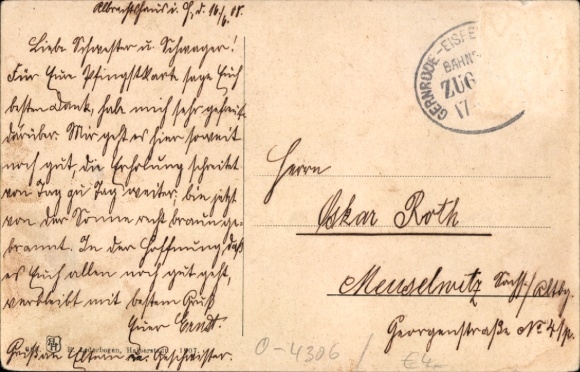 Albrechtshaus i. H., d. 16./6. 08.
Liebe Schwester u. Schwager!
Für Eure Pfingstkarte sage Euch
besten Dank, hab mich sehr gefreut
darüber. Mir geht es hier soweit
noch gut, die Erholung schreitet
von Tag zu Tag weiter, bin jetzt
von der Sonne recht braun ge-
brannt. In der Hoffnung, daß
es Euch allen noch gut geht,
verbleibt mit bestem Gruß
Euer Ernst.
Gruß an Eltern u. Geschwister.
Lederbogen, Halberstadt 1907
GERNRODE-EISFE
BAHNP
ZUG
17
Herrn
Oskar Roth
Meuselwitz Sachs./Altbg.
Georgenstraße No 4/p.
O-4306
€4-